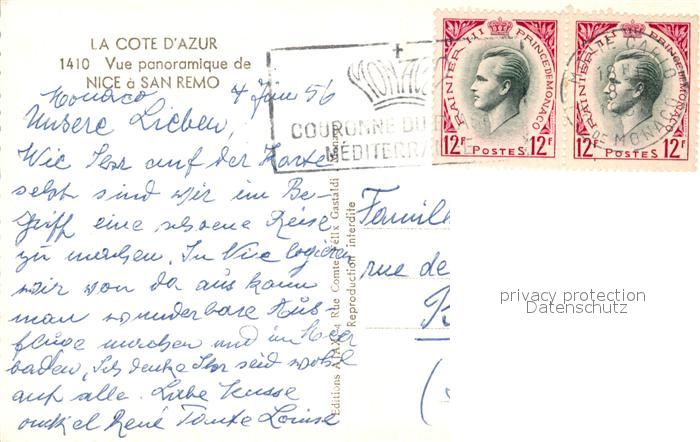 LA COTE D'AZUR
1410 Vue panoramique de
NICE à SAN REMO
Monaco 4 Juni 56
Unsere Lieben,
Wie Ihr auf der Karte
sehet sind wir im Be-
griff eine schoene Reise
zu machen. In Nice logieren
wir von da aus kann
man wunderbare Aus-
fluege machen und im Meer
baden, Ich denke Ihr seid wohl
auf alle. Liebe Kusse
onkel René Tante Louise
Editions AJAX, Rue Comte Félix Gastaldi
Reproduction interdite
MONACO
COURONNE DU
MÉDITERRA
RAINIER III PRINCE DE MONACO
12F POSTES 12F
RAINIER III PRINCE DE MONACO
12F POSTES 12F
MONTE CARLO
DE MONACO
Famill
rue de
privacy protection
Datenschutz